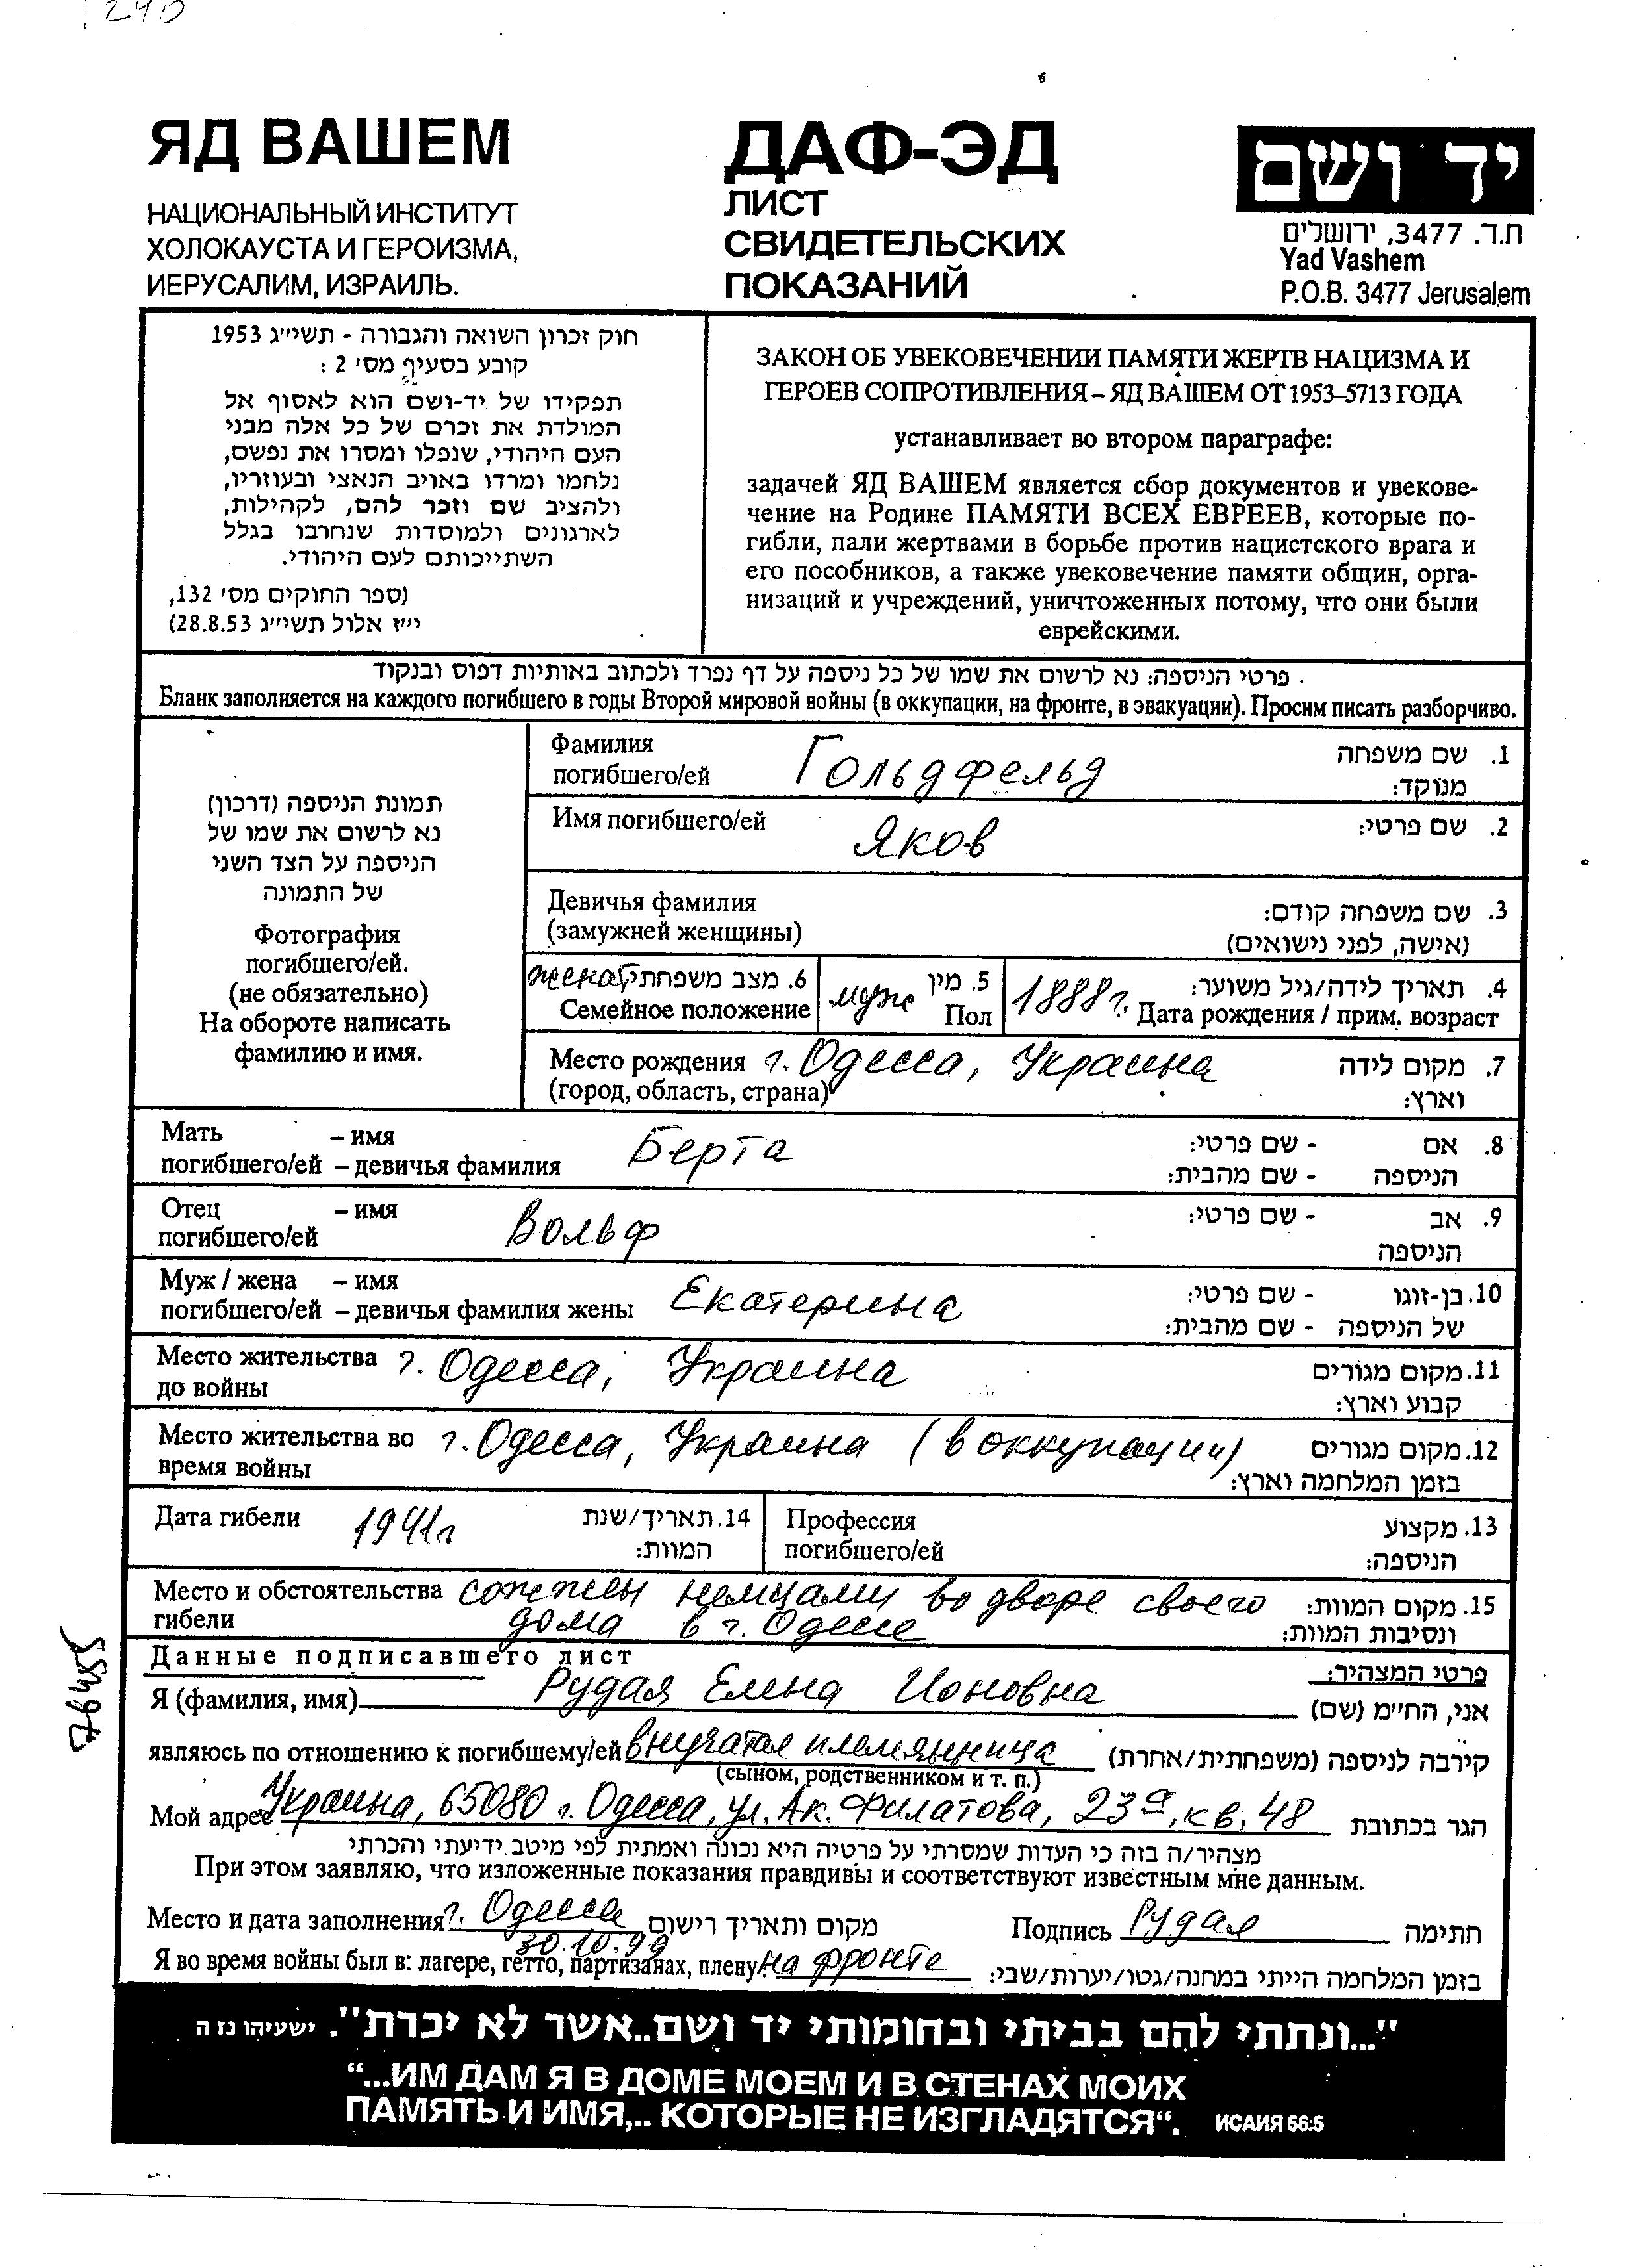 240
ЯД ВАШЕМ
НАЦИОНАЛЬНЫЙ ИНСТИТУТ
ХОЛОКАУСТА И ГЕРОИЗМА,
ИЕРУСАЛИМ, ИЗРАИЛЬ.
ДАФ-ЭД
ЛИСТ
СВИДЕТЕЛЬСКИХ
ПОКАЗАНИЙ
יד ושם
ת.ד. 3477, ירושלים
Yad Vashem
P.O.B. 3477 Jerusalem
חוק זכרון השואה והגבורה - תשי״ג 1953
קובע בסעיף מס׳ 2 :
תפקידו של יד-ושם הוא לאסוף אל
המולדת את זכרם של כל אלה מבני
העם היהודי, שנפלו ומסרו את נפשם,
נלחמו ומרדו באויב הנאצי ובעוזריו,
ולהציב שם וזכר להם, לקהילות,
לארגונים ולמוסדות שנחרבו בגלל
השתייכותם לעם היהודי.
(ספר החוקים מס׳ 132,
י״ז אלול תשי״ג 28.8.53)
ЗАКОН ОБ УВЕКОВЕЧЕНИИ ПАМЯТИ ЖЕРТВ НАЦИЗМА И
ГЕРОЕВ СОПРОТИВЛЕНИЯ – ЯД ВАШЕМ ОТ 1953–5713 ГОДА
устанавливает во втором параграфе:
задачей ЯД ВАШЕМ является сбор документов и увекове-
чение на Родине ПАМЯТИ ВСЕХ ЕВРЕЕВ, которые по-
гибли, пали жертвами в борьбе против нацистского врага и
его пособников, а также увековечение памяти общин, орга-
низаций и учреждений, уничтоженных потому, что они были
еврейскими.
פרטי הניספה: נא לרשום את שמו של כל ניספה על דף נפרד ולכתוב באותיות דפוס ובנקוד.
Бланк заполняется на каждого погибшего в годы Второй мировой войны (в оккупации, на фронте, в эвакуации). Просим писать разборчиво.
תמונת הניספה (דרכון)
נא לרשום את שמו של
הניספה על הצד השני
של התמונה
Фотография
погибшего/ей.
(не обязательно)
На обороте написать
фамилию и имя.
Фамилия Гольдфельд 1. שם משפחה
погибшего/ей מנוקד:
Имя погибшего/ей Яков 2. שם פרטי:
Девичья фамилия 3. שם משפחה קודם:
(замужней женщины) (אישה, לפני נישואים)
женат 6. מצב משפחתי 5. מין 4. תאריך לידה/גיל משוער:
Семейное положение муж Пол 1888г. Дата рождения / прим. возраст
Место рождения г. Одесса, Украина 7. מקום לידה
(город, область, страна) וארץ:
Мать – имя Берта 8. אם - שם פרטי:
погибшего/ей – девичья фамилия הניספה - שם מהבית:
Отец – имя Вольф 9. אב - שם פרטי:
погибшего/ей הניספה
Муж / жена – имя Екатерина 10. בן-זוגו - שם פרטי:
погибшего/ей – девичья фамилия жены של הניספה - שם מהבית:
Место жительства г. Одесса, Украина 11. מקום מגורים
до войны קבוע וארץ:
Место жительства во г. Одесса, Украина (в оккупации) 12. מקום מגורים
время войны בזמן המלחמה וארץ:
Дата гибели 1941г 14. תאריך/שנת Профессия 13. מקצוע
המוות: погибшего/ей הניספה:
Место и обстоятельства сожжен немцами во дворе своего 15. מקום המוות:
гибели дома в г. Одессе ונסיבות המוות:
Данные подписавшего лист פרטי המצהיר:
Я (фамилия, имя) Рудая Елена Ионовна אני, הח״מ (שם)
являюсь по отношению к погибшему/ей внучатая племянница קירבה לניספה (משפחתית/אחרת)
(сыном, родственником и т. п.)
Мой адрес Украина, 65080 г. Одесса, ул. Ак. Филатова, 23а, кв. 48 הגר בכתובת
מצהיר/ה בזה כי העדות שמסרתי על פרטיה היא נכונה ואמתית לפי מיטב ידיעתי והכרתי
При этом заявляю, что изложенные показания правдивы и соответствуют известным мне данным.
Место и дата заполнения г. Одесса מקום ותאריך רישום Подпись Рудая חתימה
30.10.99
Я во время войны был в: лагере, гетто, партизанах, плену: на фронте בזמן המלחמה הייתי במחנה/גטו/יערות/שבי:
76455
"...ונתתי להם בביתי ובחומותי יד ושם..אשר לא יכרת". ישעיהו נז ה
“...ИМ ДАМ Я В ДОМЕ МОЕМ И В СТЕНАХ МОИХ
ПАМЯТЬ И ИМЯ,.. КОТОРЫЕ НЕ ИЗГЛАДЯТСЯ“. ИСАИЯ 56:5